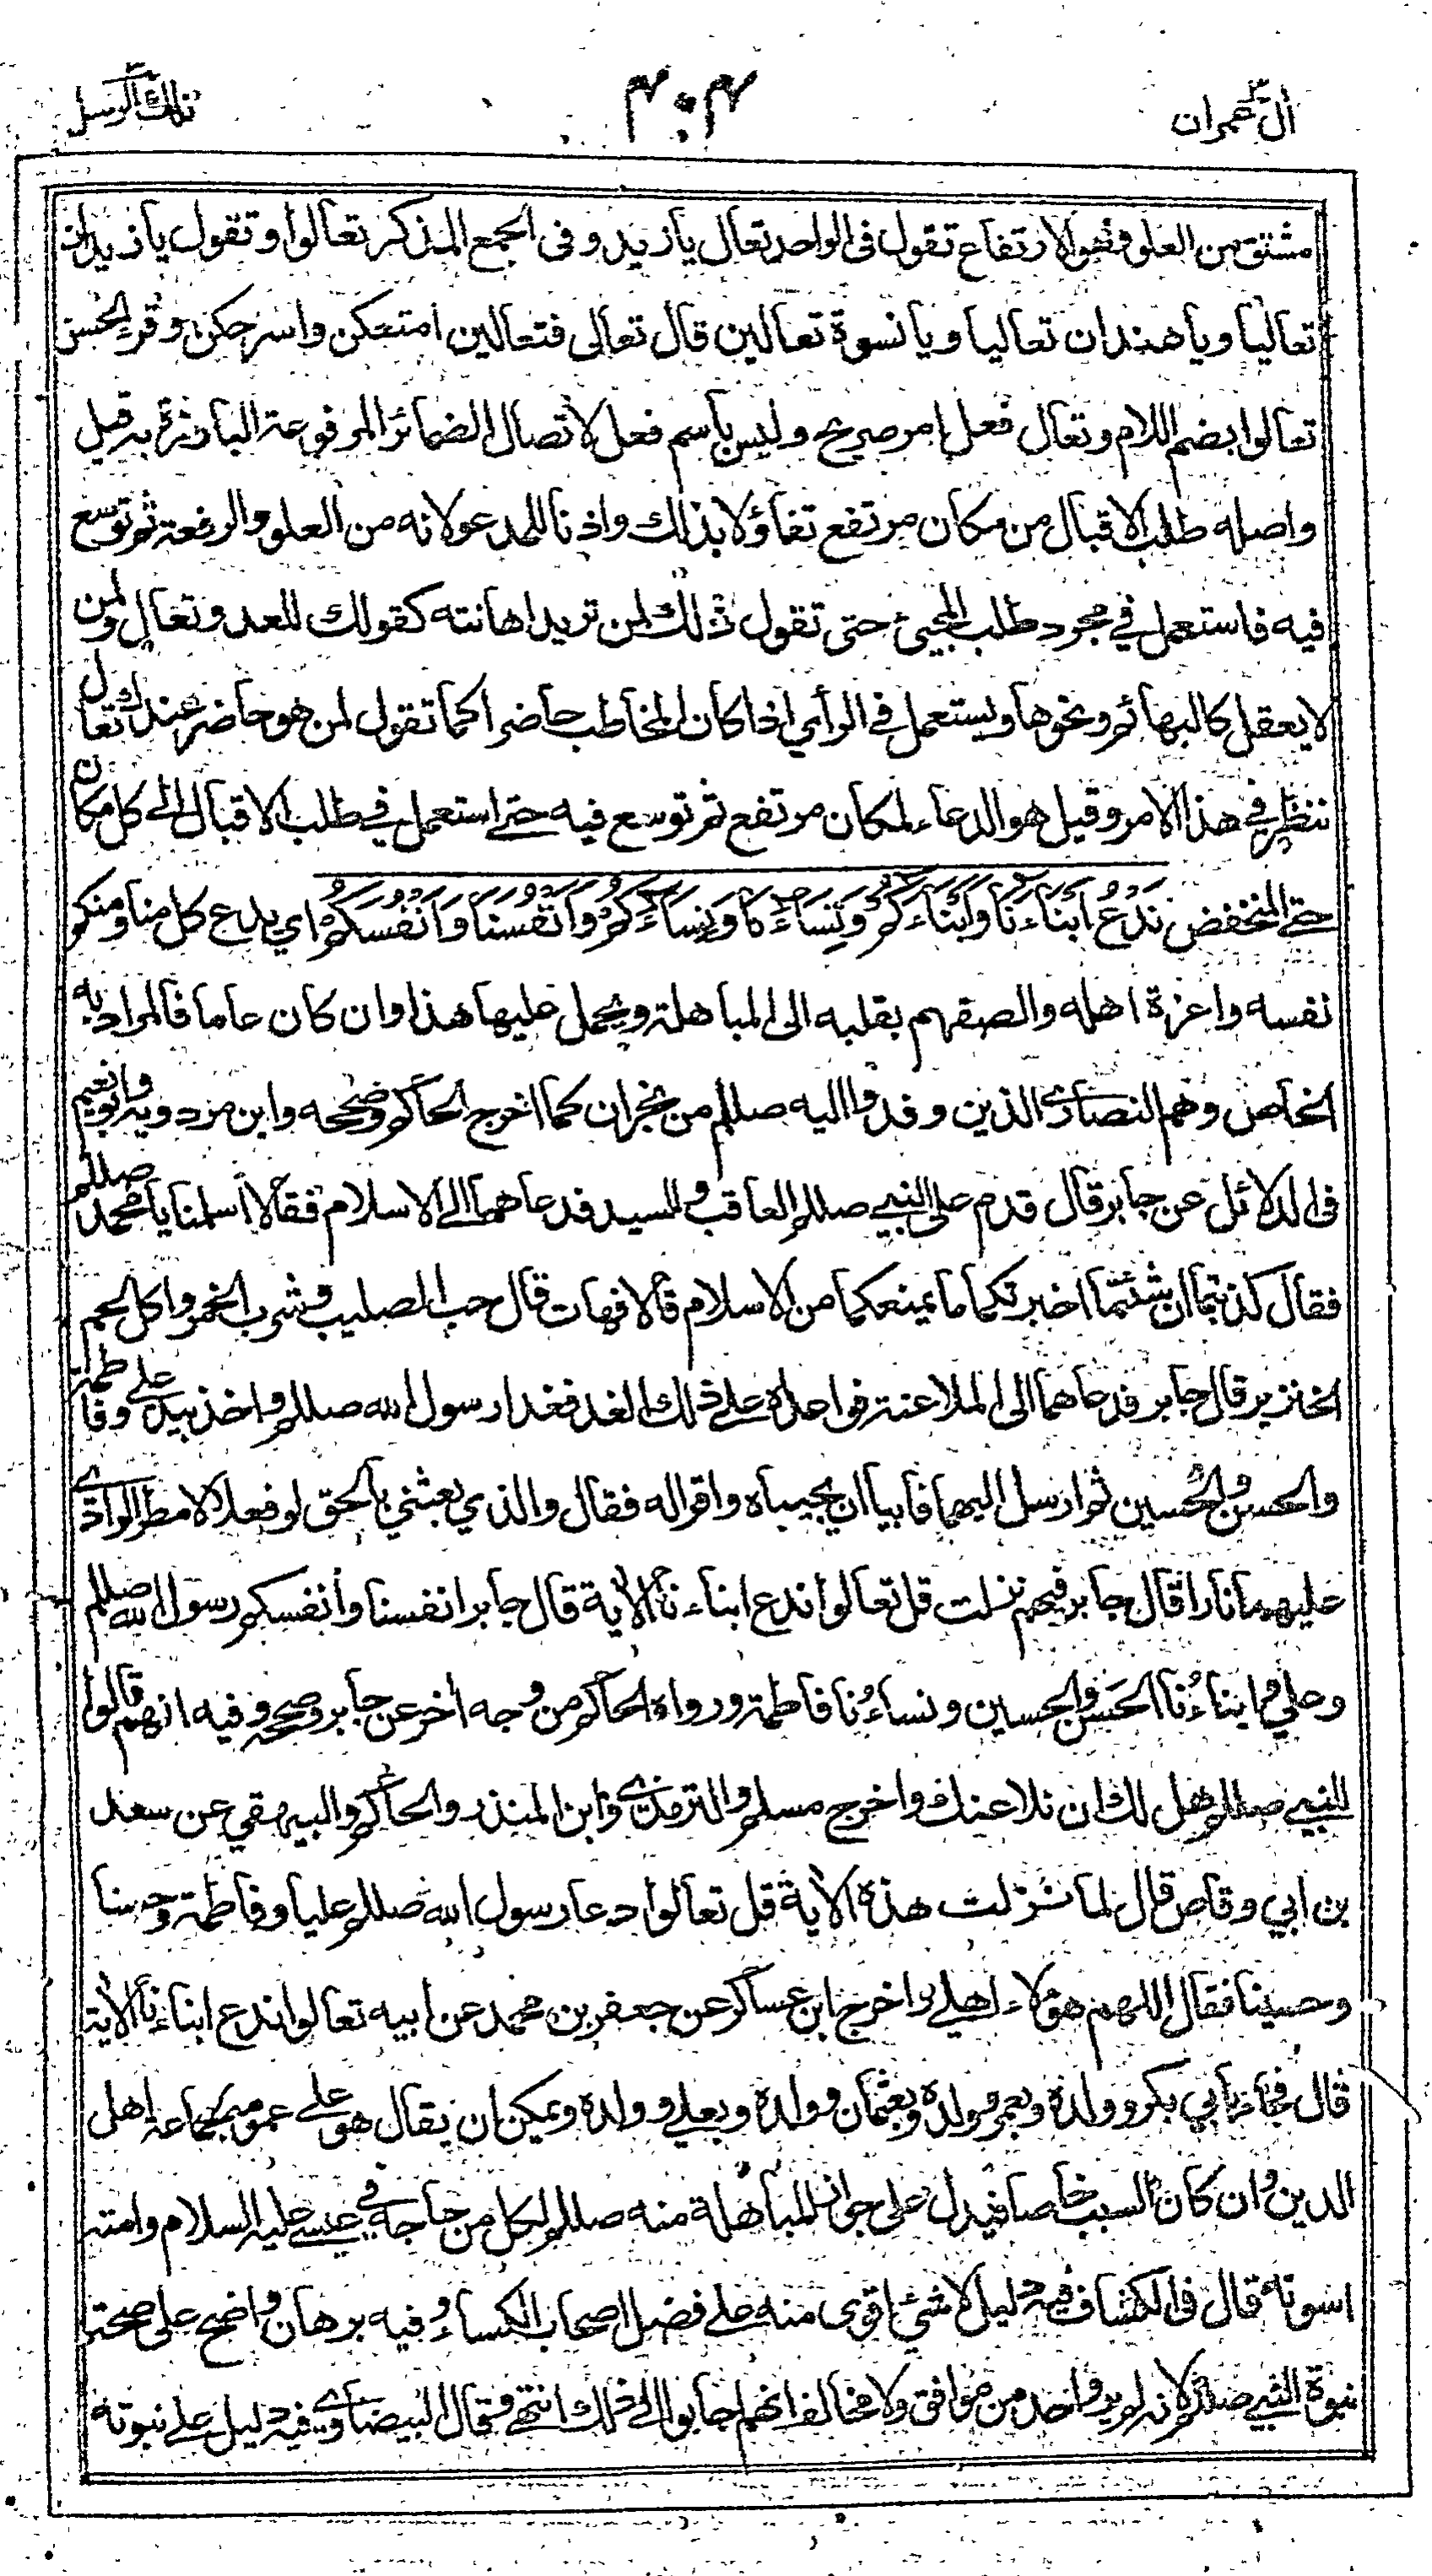 آل عمران
٤٠٤
تلك الرسل
مشتق من العلو وهو الارتفاع تقول فى الواحد تعال يا زيد وفى الجمع المذكر تعالوا وتقول يا زيدان
تعاليا ويا هندان تعاليا ويا نسوة تعالين قال تعالى فتعالين امتعكن واسرحكن وقرء الحسن
تعالوا بضم اللام وتعال فعل امر صريح وليس باسم فعل لاتصال الضمائر المرفوعة البارزة به قيل
واصله طلب الاقبال من مكان مرتفع تفاؤلا بذلك واذنا للمدعو لانه من العلو والرفعة ثم توسع
فيه فاستعمل في مجرد طلب المجيئ حتى تقول ذلك لمن تريد اهانته كقولك للعدو تعال ولمن
لا يعقل كالبهائم ونحوها ويستعمل في الرأي اذا كان المخاطب حاضرا كما تقول لمن هو حاضر عندك تعال
ننظر في هذا الامر وقيل هو الدعاء لمكان مرتفع ثم توسع فيه حتى استعمل في طلب الاقبال الى كل مكان
حتى المنخفض نَدْعُ اَبْنَاءَنَا وَاَبْنَاءَكُمْ وَنِسَاءَنَا وَنِسَاءَكُمْ وَاَنْفُسَنَا وَاَنْفُسَكُمْ اي يدع كل منا ومنكم
نفسه واعزة اهله والصقهم بقلبه الى المباهلة ويحمل عليها هذا وان كان عاما فالمراد به
الخاص وهم النصارى الذين وفدوا اليه صللم من نجران كما اخرج الحاكم وصححه وابن مردويه وابو نعيم
فى الدلائل عن جابر قال قدم على النبي صللم العاقب والسيد فدعاهما الى الاسلام فقالا اسلمنا يا محمد صللم
فقال كذبتما ان شئتما اخبرتكما ما يمنعكما من الاسلام قالا فهات قال حب الصليب وشرب الخمر واكل لحم
الخنزير قال جابر فدعاهما الى الملاعنة فواعداه على ذلك الغد فغدا رسول الله صللم واخذ بيد علي وفاطمة
والحسن والحسين ثم ارسل اليهما فابيا ان يجيباه واقرا له فقال والذي بعثني بالحق لو فعلا لامطر الوادي
عليهما نارا قال جابر فيهم نزلت قل تعالوا ندع ابناءنا الآية قال جابر انفسنا وأنفسكم رسول الله صللم
وعلي وابناءُنا الحَسَن والحسين ونساءُنا فاطمة ورواه الحاكم من وجه اخر عن جابر وصححه وفيه انهم قالوا
للنبي صللم هل لك ان نلاعنك واخرج مسلم والترمذي وابن المنذر والحاكم والبيهقي عن سعد
بن ابي وقاص قال لما نزلت هذه الآية قل تعالوا دعا رسول الله صللم عليا وفاطمة وحسنا
وحسينا فقال اللهم هؤلاء اهلي واخرج ابن عساكر عن جعفر بن محمد عن ابيه تعالوا ندع ابناءنا الآية
قال فجاء بأبي بكر وولده وبعمر وولده وبعثمان وولده وبعلي وولده ويمكن ان يقال هو على عمومه لجماعة اهل
الدين وان كان السبب خاصا فيدل على جواز المباهلة منه صللم لكل من حاجه في عيسى عليه السلام وامته
اسوته قال فى الكشاف فيه دليل لا شئ اقوى منه على فضل اصحاب الكساء وفيه برهان واضح على صحة
نبوة النبي صللم لانه لم يرو احد من موافق ولا مخالف انهم اجابوا الى ذلك انتهى وقال البيضاوي فيه دليل على نبوته